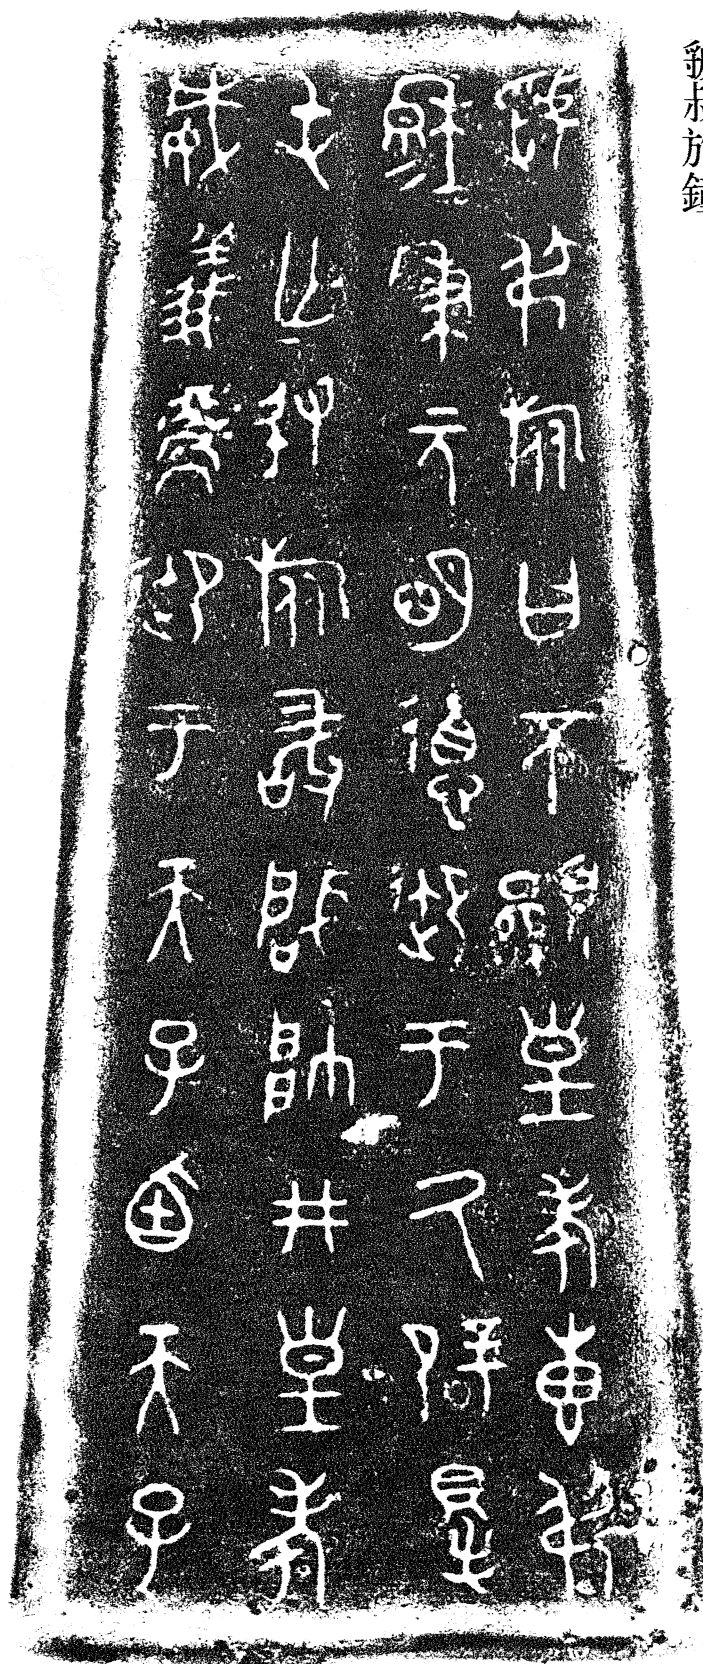 虢叔旅鐘
虢叔旅曰不顯皇考叀叔
穆=秉元明德御于氒辟䙷
屯亡敃旅敢肇帥井皇考
威義御于天子廼天子